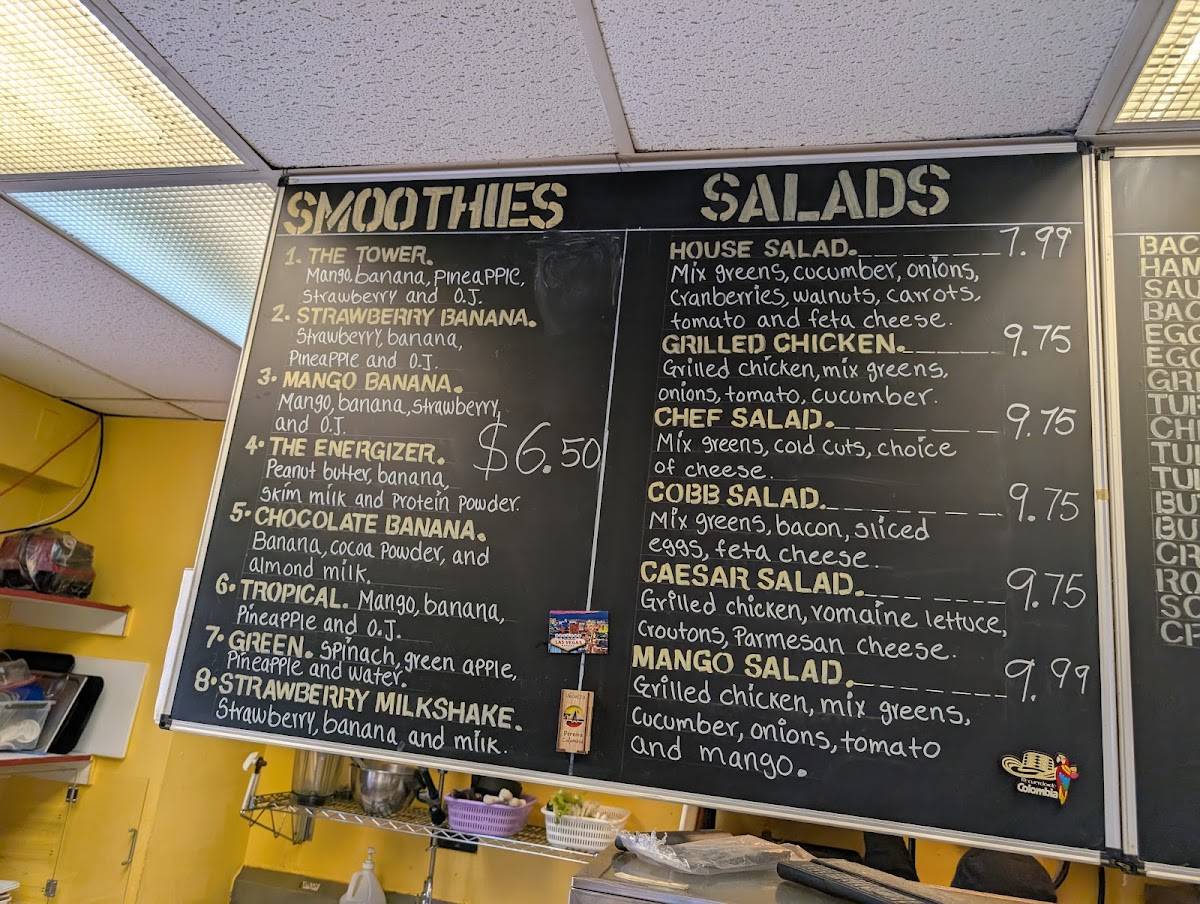 SMOOTHIES
1. THE TOWER.
Mango, banana, pineapple,
Strawberry and O.J.
2. STRAWBERRY BANANA.
Strawberry, banana,
Pineapple and O.J.
3. MANGO BANANA.
Mango, banana, strawberry,
and O.J.
4. THE ENERGIZER.
$6.50
Peanut butter, banana,
skim milk and protein powder.
5. CHOCOLATE BANANA.
Banana, cocoa powder, and
almond milk.
6. TROPICAL. Mango, banana,
Pineapple and O.J.
7. GREEN. Spinach, green apple,
Pineapple and water.
8. STRAWBERRY MILKSHAKE.
Strawberry, banana, and milk.
SALADS
HOUSE SALAD. 7.99
Mix greens, cucumber, onions,
Cranberries, walnuts, carrots,
tomato and feta cheese.
GRILLED CHICKEN. 9.75
Grilled chicken, mix greens,
onions, tomato, cucumber.
CHEF SALAD. 9.75
Mix greens, cold cuts, choice
of cheese.
COBB SALAD. 9.75
Mix greens, bacon, sliced
eggs, feta cheese.
CAESAR SALAD. 9.75
Grilled chicken, romaine lettuce,
Croutons, Parmesan cheese.
MANGO SALAD. 9.99
Grilled chicken, mix greens,
Cucumber, onions, tomato
and mango.
LAS VEGAS
Pereira
Colombia
Colombia
BAC
HAM
SAU
BAC
EGG
EGG
GRI
TUR
CHI
TUR
TUR
BU
BU
CR
RO
SO
CH